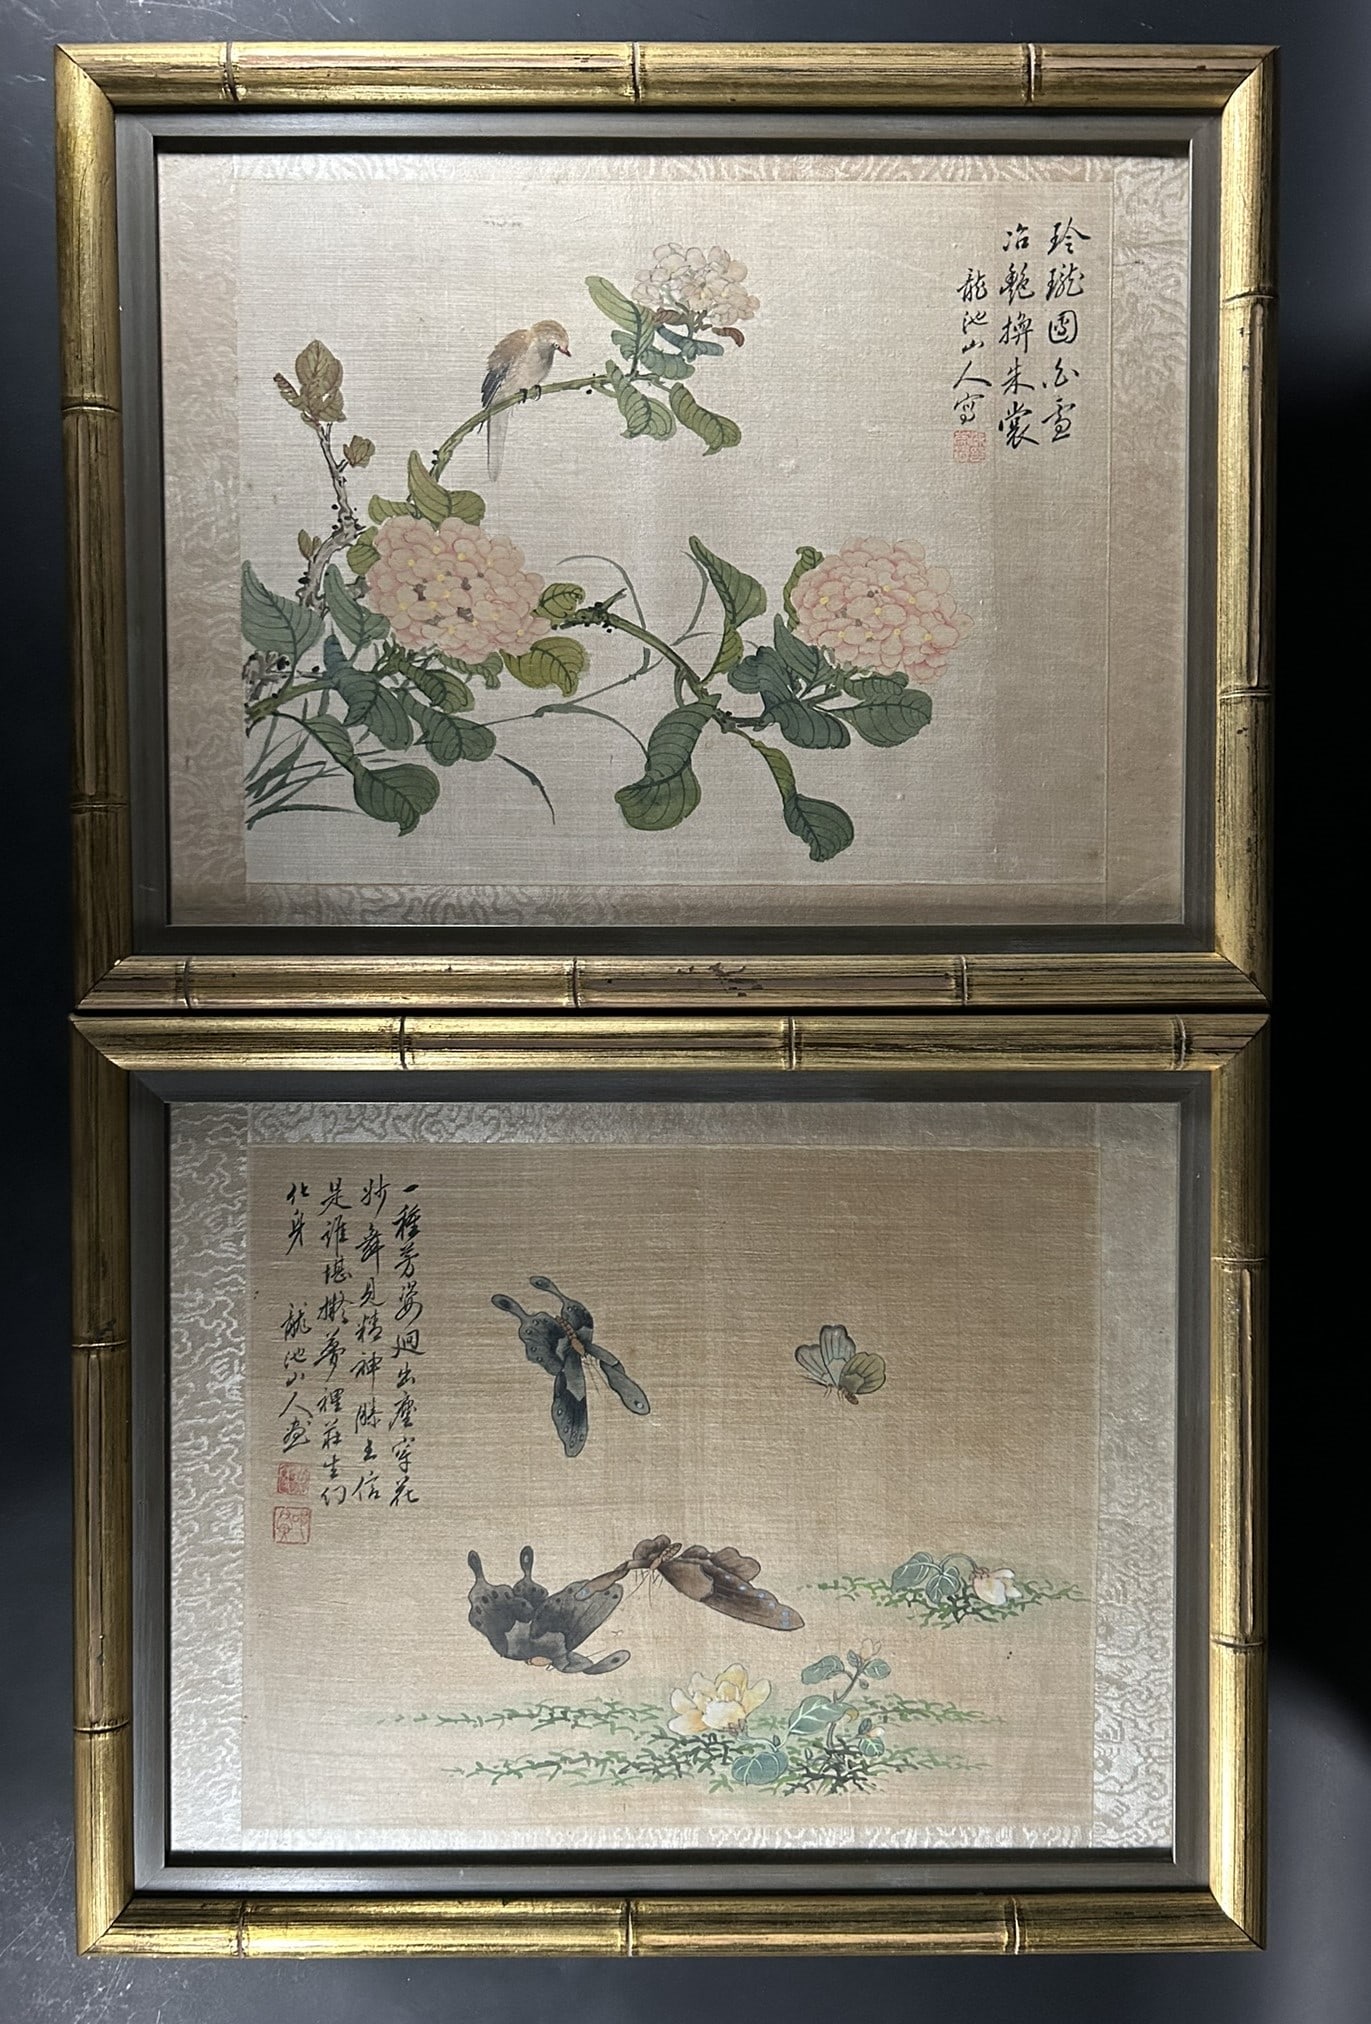 玲瓏團白雪
冶艷擯朱裳
龍池山人寫
一種芳姿迥出塵穿花
妙舞見精神滕王信
是誰堪擬夢裡莊生幻
化身
龍池山人画